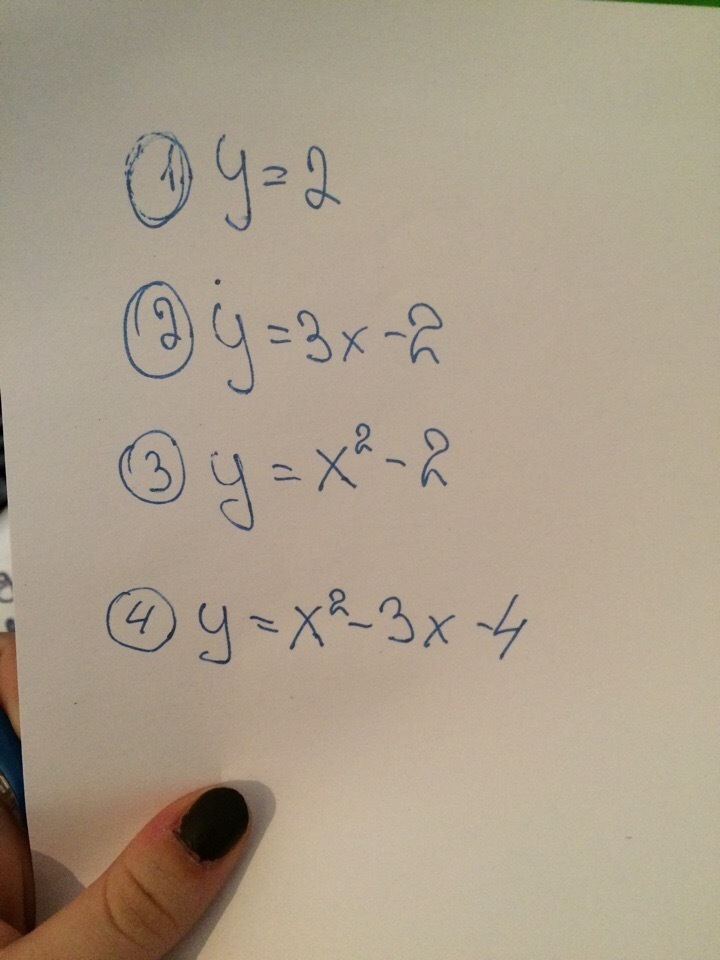 ① y = 2
② y = 3x - 2
③ y = x² - 2
④ y = x² - 3x - 4